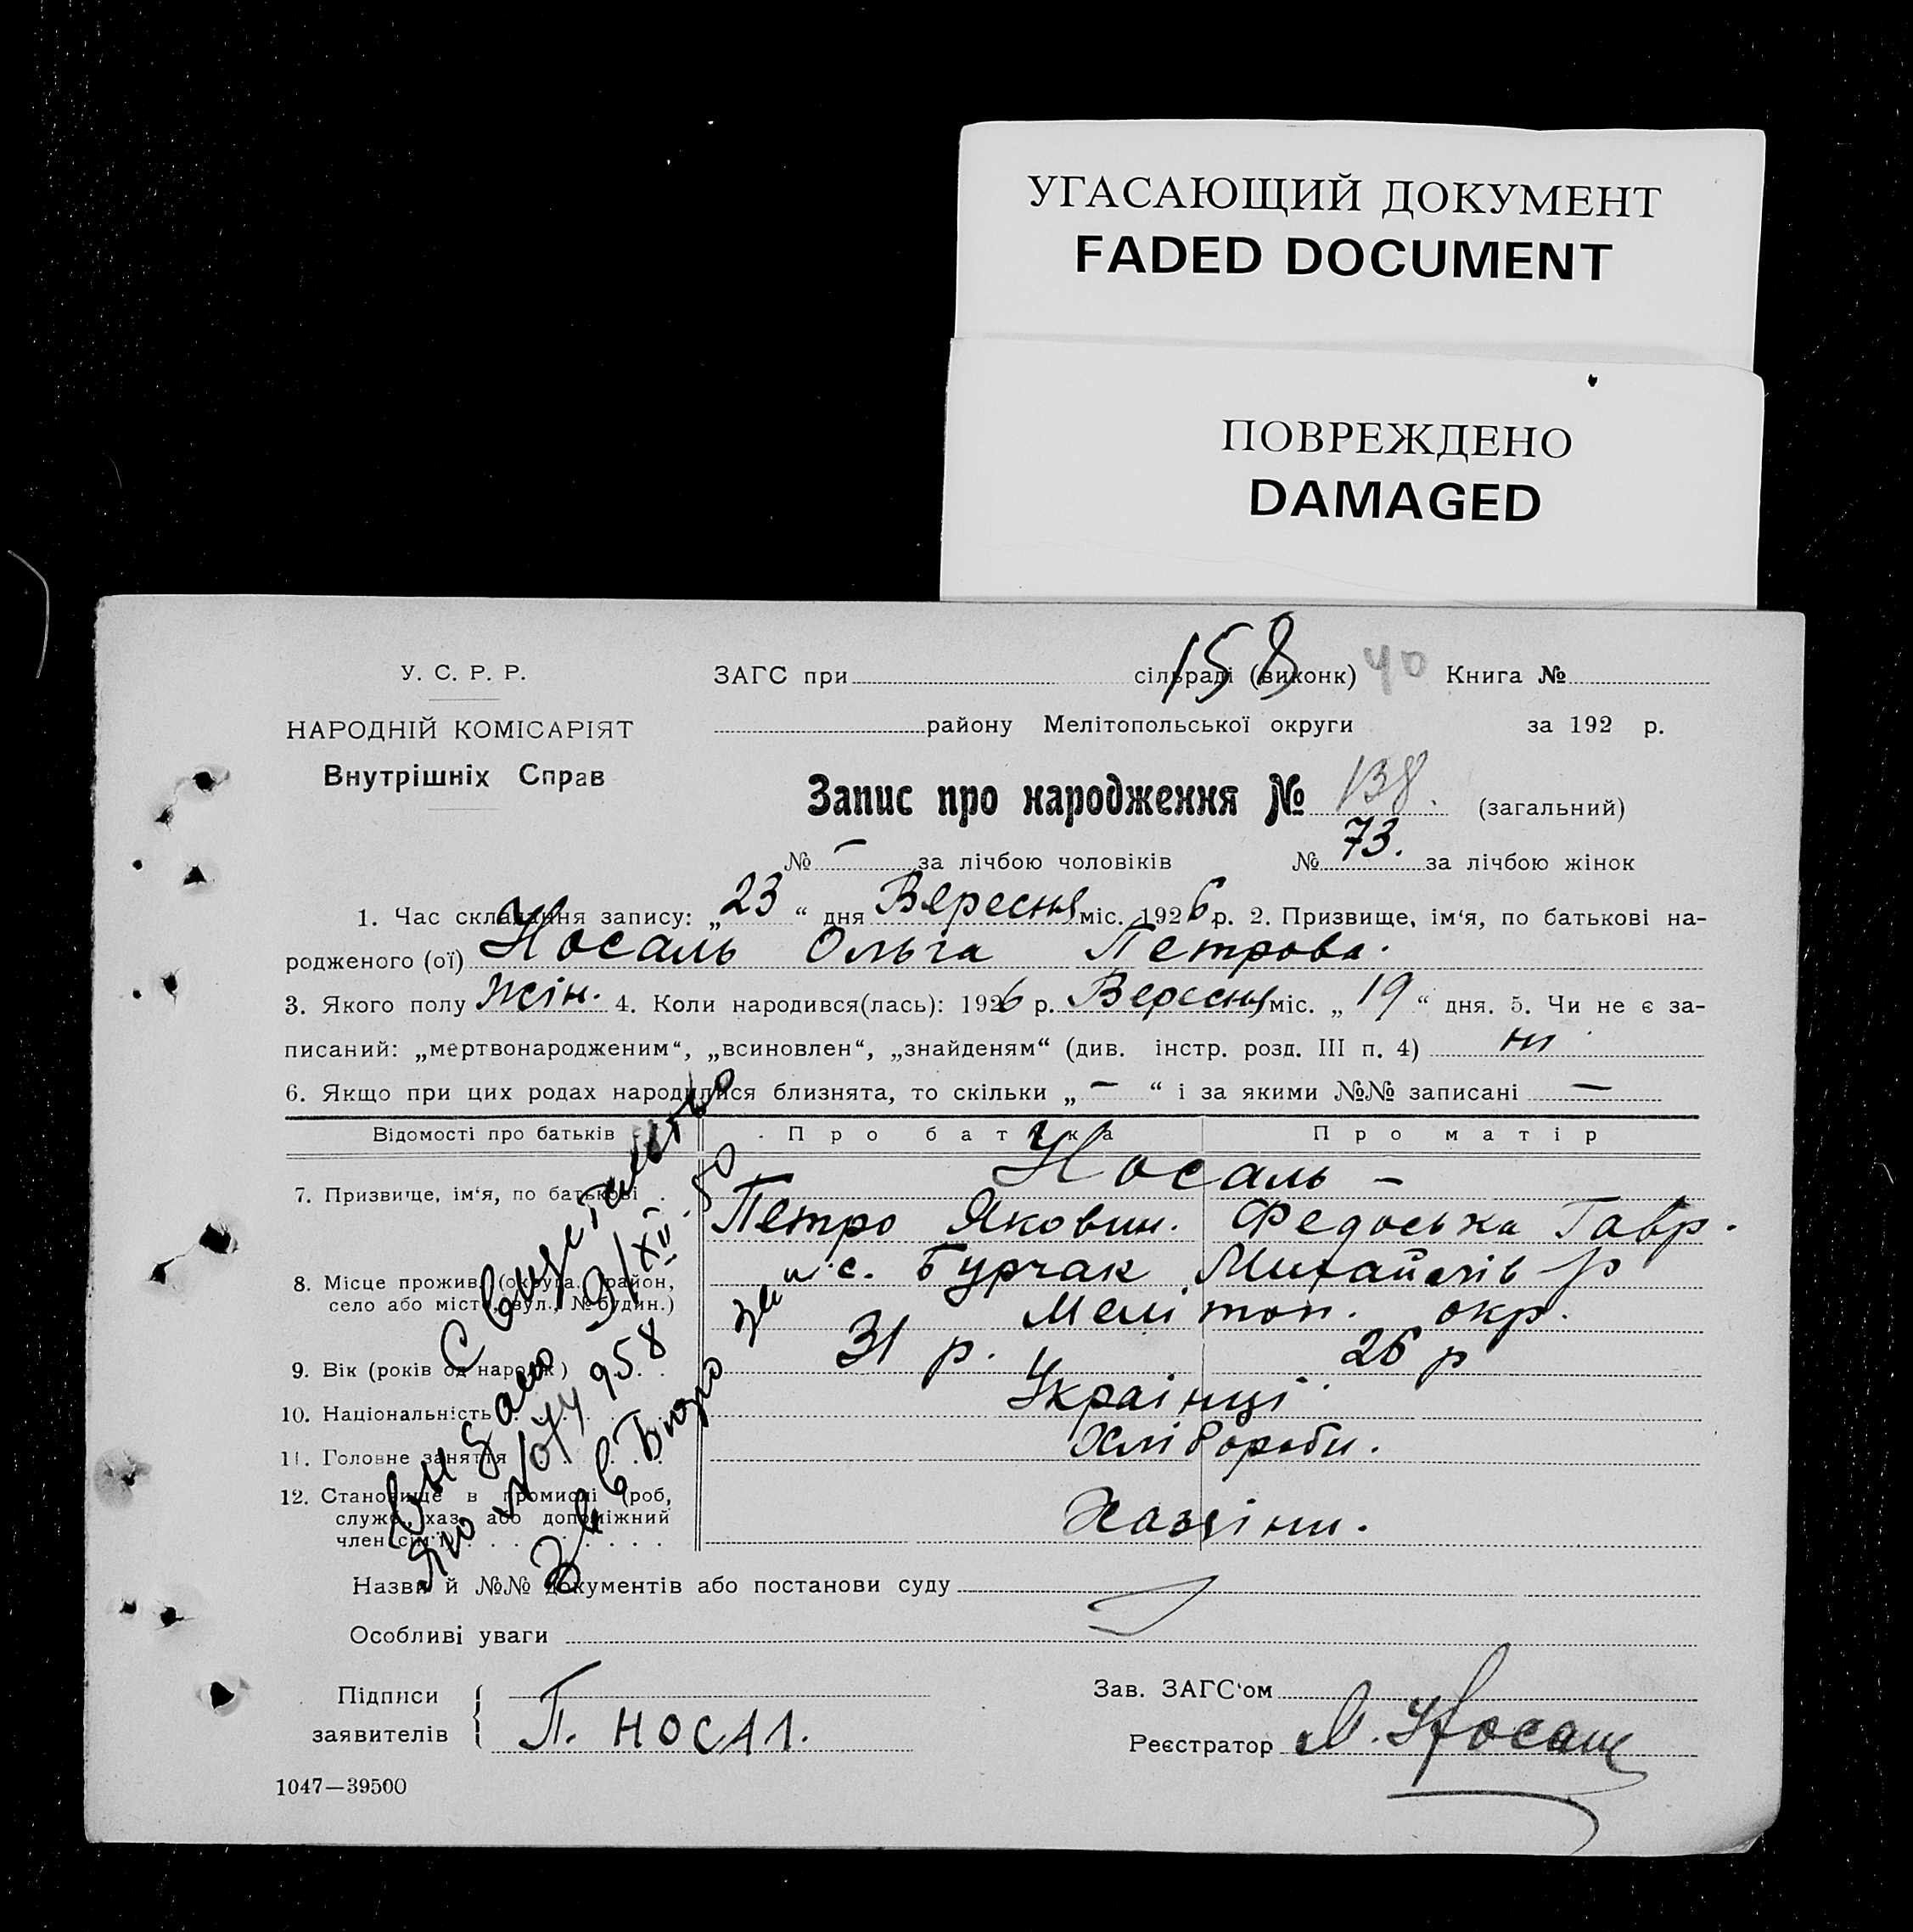 УГАСАЮЩИЙ ДОКУМЕНТ
FADED DOCUMENT
ПОВРЕЖДЕНО
DAMAGED
158 40
У. С. Р. Р.
НАРОДНІЙ КОМІСАРІЯТ
Внутрішніх Справ
ЗАГС при сільраді (виконк) Книга №
району Мелітопольської округи за 192 р.
Запис про народження № 138. (загальний)
№ — за лічбою чоловіків № 73. за лічбою жінок
1. Час складання запису: „23“ дня Вересня міс. 1926 р. 2. Призвище, ім‘я, по батькові на-
родженого (ої) Носаль Ольга Петрова.
3. Якого полу жін. 4. Коли народився(лась): 1926 р. Вересня міс. „19“ дня. 5. Чи не є за-
писаний: „мертвонародженим“, „всиновлен“, „знайденям“ (див. інстр. розд. III п. 4) ні
6. Якщо при цих родах народилися близнята, то скільки „—“ і за якими №№ записані —
Відомості про батьків Про батька Про матір
7. Призвище, ім‘я, по батькові Носаль —
Петро Яковин. Федоська Гавр.
8. Місце прожив. (округа, район, с. Бурчак Михайлів р
село або місто, вул., № будин.) Мелітоп. окр.
9. Вік (років од народж) 31 р. 26 р
10. Національність Українці
11. Головне заняття Хлібороби.
12. Становище в промислі (роб,
служб., хаз. або допоміжний Хазяіни.
член сім‘ї)
Назви й №№ документів або постанови суду
Особливі уваги
Підписи
заявителів П. НОСАЛ.
Зав. ЗАГС‘ом
Реєстратор М. Носащ
1047—39500
Выдано Свидетельство
9/XII-50
Зав Бюро